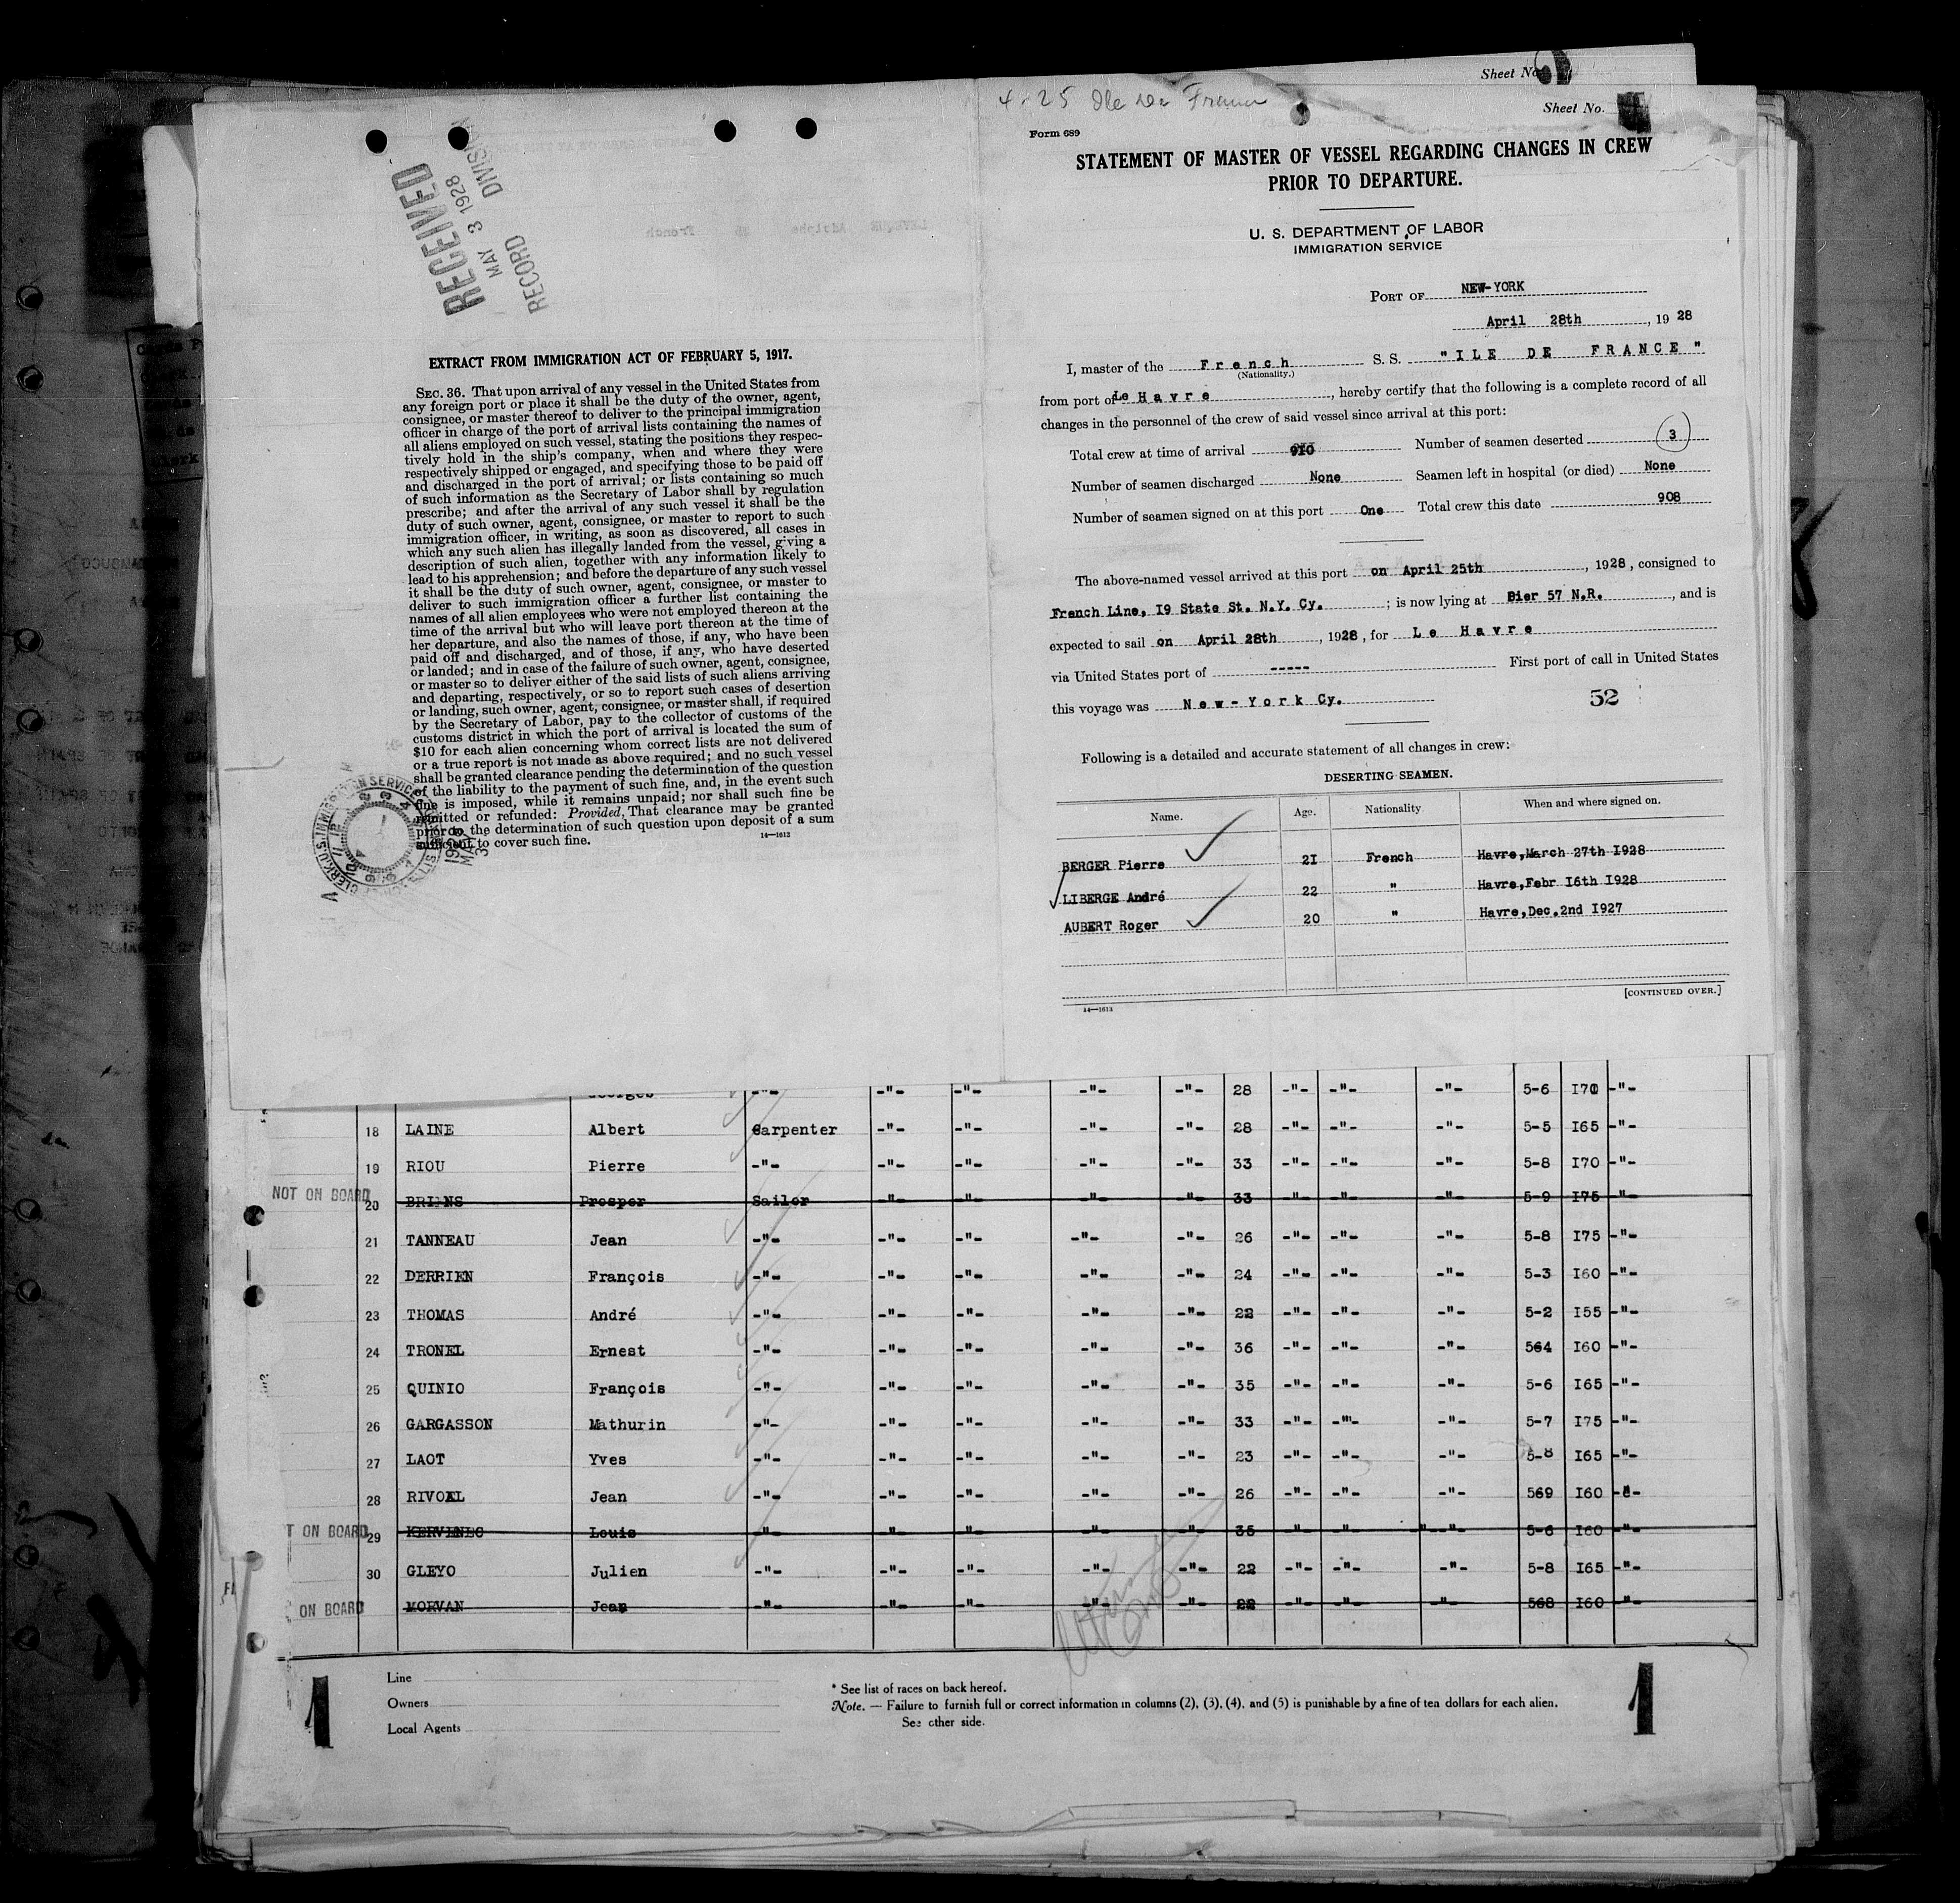 Sheet No.
4-25 Ile de France
Sheet No.
Form 689
STATEMENT OF MASTER OF VESSEL REGARDING CHANGES IN CREW
PRIOR TO DEPARTURE.
U. S. DEPARTMENT OF LABOR
IMMIGRATION SERVICE
PORT OF NEW-YORK
April 28th, 1928
I, master of the French S. S. "ILE DE FRANCE"
(Nationality.)
from port of Le Havre, hereby certify that the following is a complete record of all
changes in the personnel of the crew of said vessel since arrival at this port:
Total crew at time of arrival 910 Number of seamen deserted 3
Number of seamen discharged None Seamen left in hospital (or died) None
Number of seamen signed on at this port One Total crew this date 908
The above-named vessel arrived at this port on April 25th, 1928, consigned to
French Line, I9 State St. N.Y. Cy. ; is now lying at Pier 57 N.R., and is
expected to sail on April 28th, 1928, for Le Havre
via United States port of ----- First port of call in United States
this voyage was New-York Cy. 52
Following is a detailed and accurate statement of all changes in crew:
DESERTING SEAMEN.
Name. Age. Nationality When and where signed on.
BERGER Pierre 2I French Havre, March 27th I928
LIBERGE André 22 " Havre, Febr I6th I928
AUBERT Roger 20 " Havre, Dec. 2nd I927
[CONTINUED OVER.]
14—1613
RECEIVED
MAY 3 1928
RECORD DIVISION
EXTRACT FROM IMMIGRATION ACT OF FEBRUARY 5, 1917.
SEC. 36. That upon arrival of any vessel in the United States from
any foreign port or place it shall be the duty of the owner, agent,
consignee, or master thereof to deliver to the principal immigration
officer in charge of the port of arrival lists containing the names of
all aliens employed on such vessel, stating the positions they respec-
tively hold in the ship's company, when and where they were
respectively shipped or engaged, and specifying those to be paid off
and discharged in the port of arrival; or lists containing so much
of such information as the Secretary of Labor shall by regulation
prescribe; and after the arrival of any such vessel it shall be the
duty of such owner, agent, consignee, or master to report to such
immigration officer, in writing, as soon as discovered, all cases in
which any such alien has illegally landed from the vessel, giving a
description of such alien, together with any information likely to
lead to his apprehension; and before the departure of any such vessel
it shall be the duty of such owner, agent, consignee, or master to
deliver to such immigration officer a further list containing the
names of all alien employees who were not employed thereon at the
time of the arrival but who will leave port thereon at the time of
her departure, and also the names of those, if any, who have been
paid off and discharged, and of those, if any, who have deserted
or landed; and in case of the failure of such owner, agent, consignee,
or master so to deliver either of the said lists of such aliens arriving
and departing, respectively, or so to report such cases of desertion
or landing, such owner, agent, consignee, or master shall, if required
by the Secretary of Labor, pay to the collector of customs of the
customs district in which the port of arrival is located the sum of
$10 for each alien concerning whom correct lists are not delivered
or a true report is not made as above required; and no such vessel
shall be granted clearance pending the determination of the question
of the liability to the payment of such fine, and, in the event such
fine is imposed, while it remains unpaid; nor shall such fine be
remitted or refunded: Provided, That clearance may be granted
prior to the determination of such question upon deposit of a sum
sufficient to cover such fine.
14—1613
Georges -"- -"- -"- -"- -"- 28 -"- -"- -"- 5-6 I70 -"-
18 LAINE Albert Carpenter -"- -"- -"- -"- 28 -"- -"- -"- 5-5 I65 -"-
19 RIOU Pierre -"- -"- -"- -"- -"- 33 -"- -"- -"- 5-8 I70 -"-
NOT ON BOARD 20 Prosper Sailor -"- -"- -"- -"- 33 -"- -"- -"- 5-9 I75 -"-
21 TANNEAU Jean -"- -"- -"- -"- -"- 26 -"- -"- -"- 5-8 I75 -"-
22 DERRIEN François -"- -"- -"- -"- -"- 24 -"- -"- -"- 5-3 I60 -"-
23 THOMAS André -"- -"- -"- -"- -"- 22 -"- -"- -"- 5-2 I55 -"-
24 TRONEL Ernest -"- -"- -"- -"- -"- 36 -"- -"- -"- 564 I60 -"-
25 QUINIO François -"- -"- -"- -"- -"- 35 -"- -"- -"- 5-6 I65 -"-
26 GARGASSON Mathurin -"- -"- -"- -"- -"- 33 -"- -"- -"- 5-7 I75 -"-
27 LAOT Yves -"- -"- -"- -"- -"- 23 -"- -"- -"- 5-8 I65 -"-
28 RIVOAL Jean -"- -"- -"- -"- -"- 26 -"- -"- -"- 569 I60 -"-
T ON BOARD 29 KERVENEC Louis -"- -"- -"- -"- -"- 35 -"- -"- -"- 5-6 I60 -"-
30 GLEYO Julien -"- -"- -"- -"- -"- 22 -"- -"- -"- 5-8 I65 -"-
ON BOARD MORVAN Jean -"- -"- -"- -"- -"- 22 -"- -"- -"- 568 I60 -"-
Line
Owners
Local Agents
* See list of races on back hereof.
Note. — Failure to furnish full or correct information in columns (2), (3), (4), and (5) is punishable by a fine of ten dollars for each alien.
See other side.
1 1